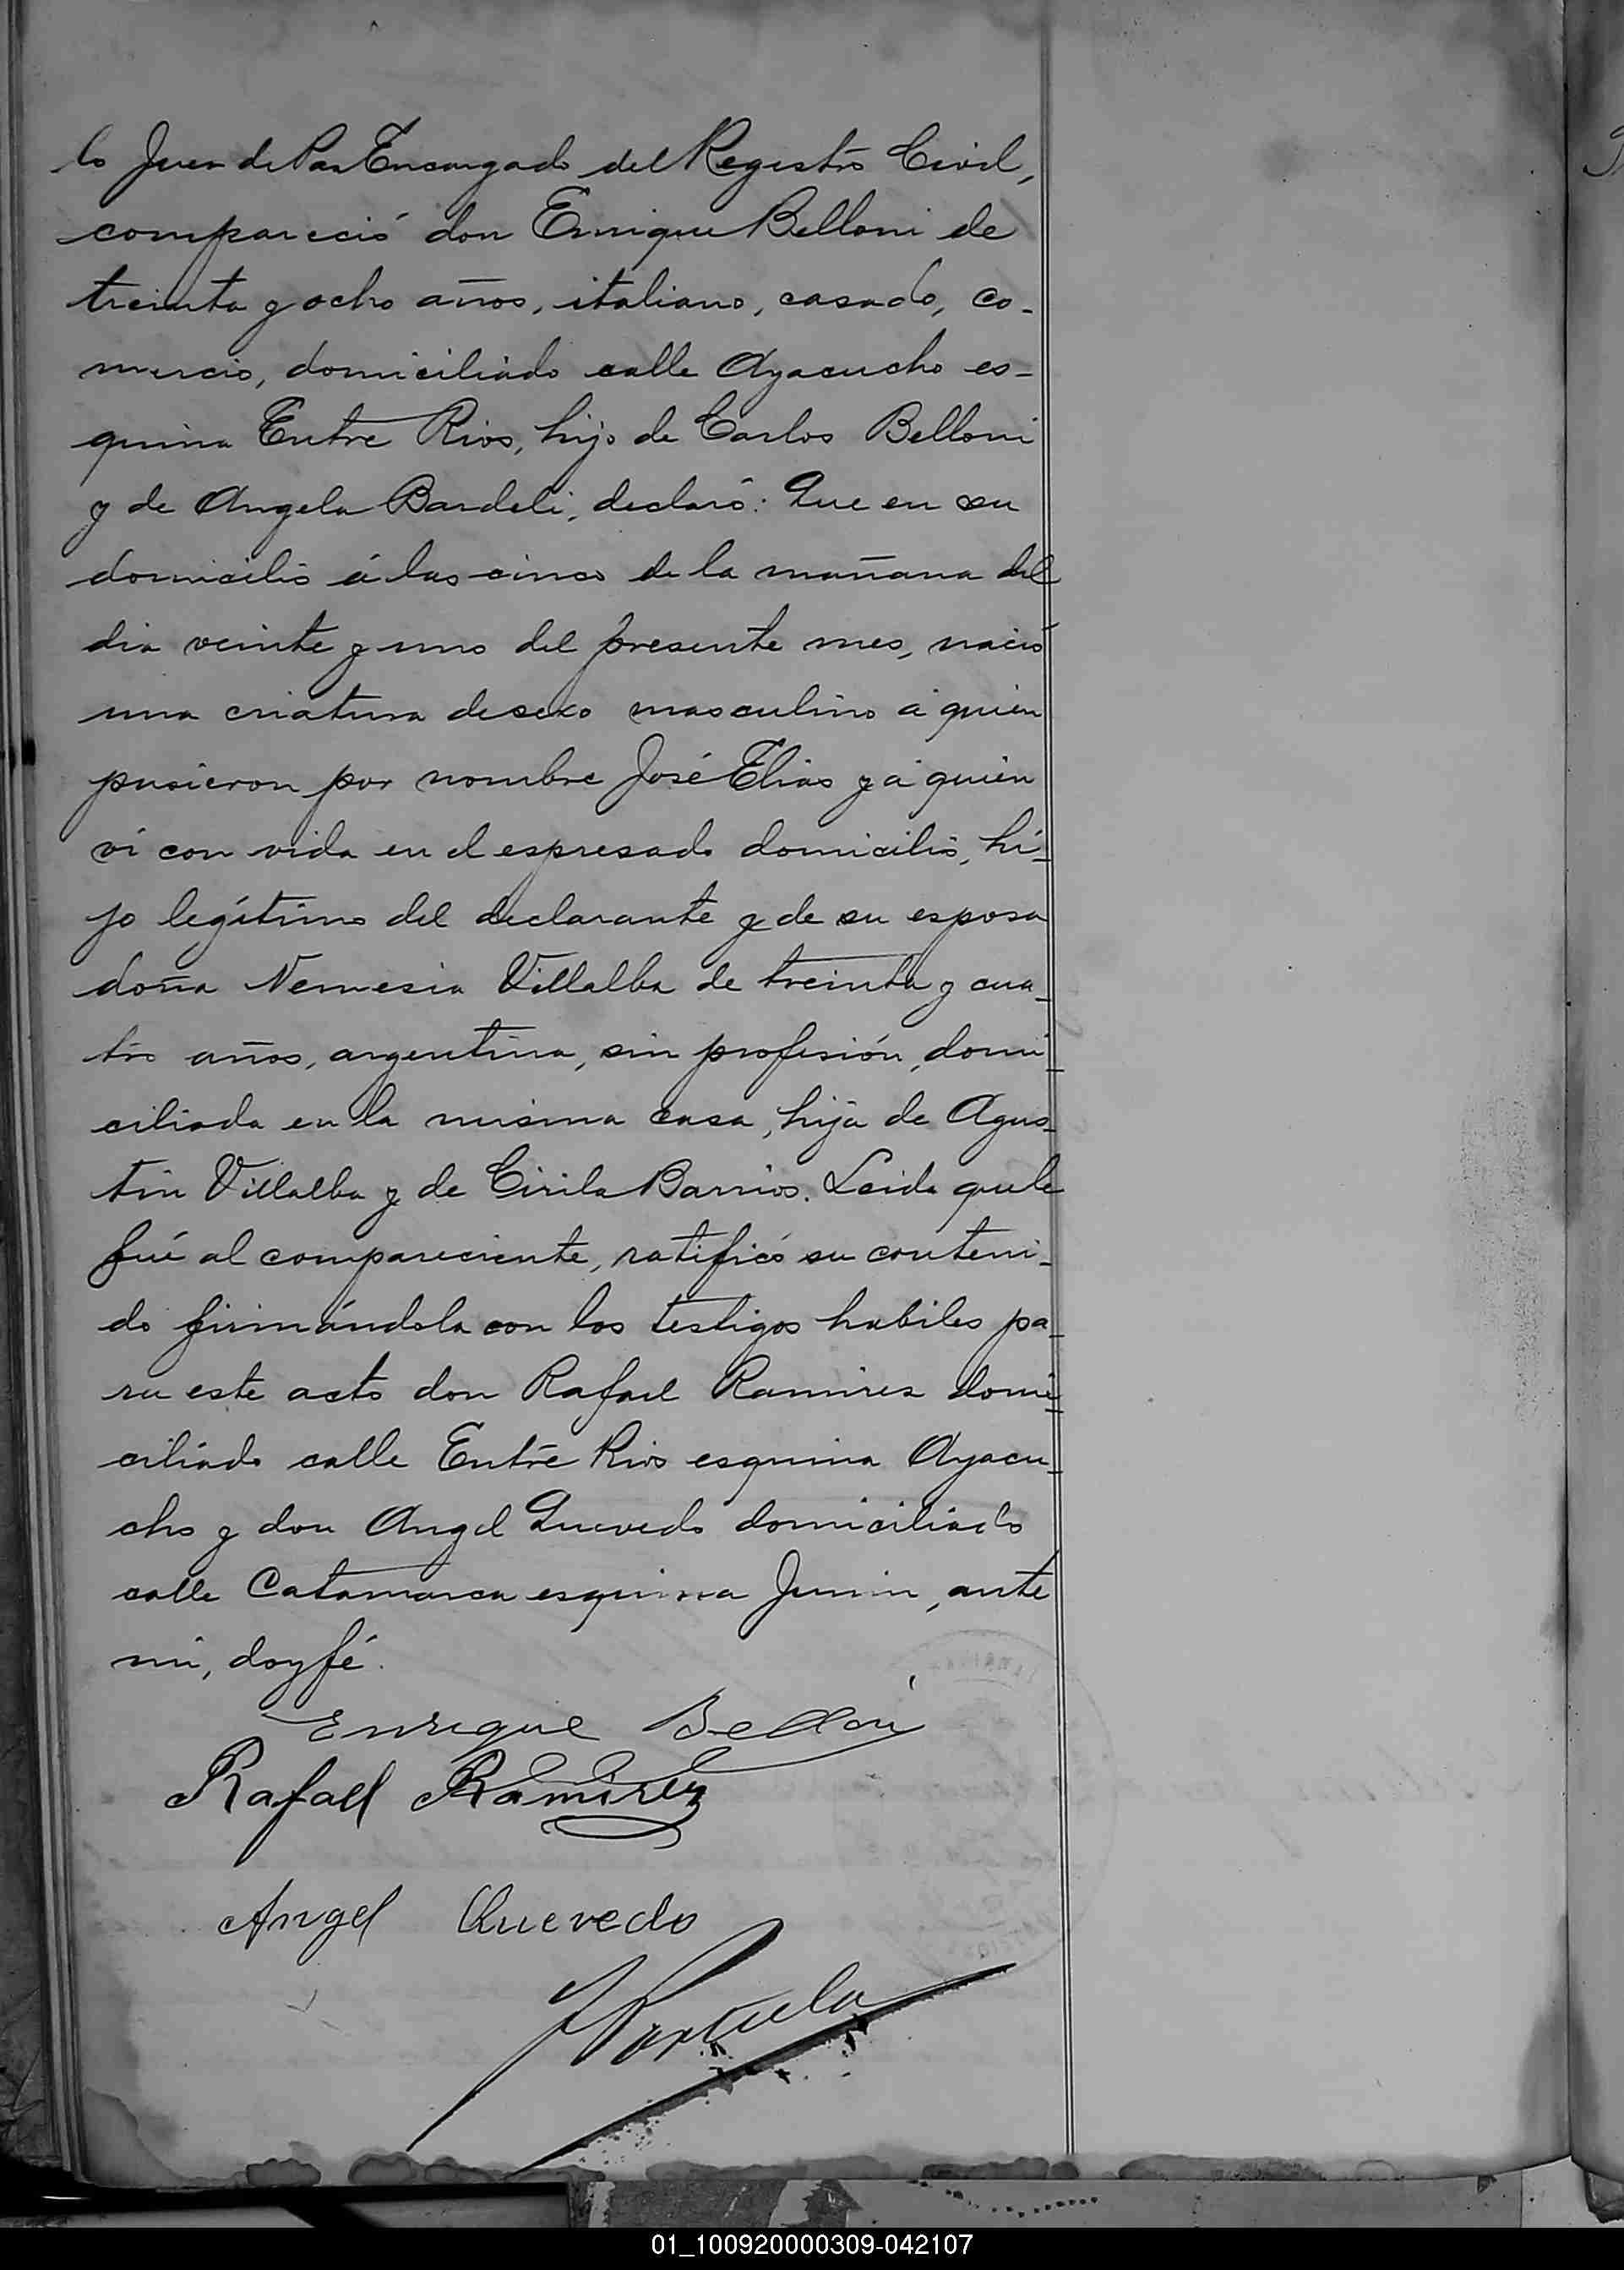 lo Juez de Paz Encargado del Registro Civil,
compareció don Enrique Belloni de
treinta y ocho años, italiano, casado, co-
mercio, domiciliado calle Ayacucho es-
quina Entre Rios, hijo de Carlos Belloni
y de Angela Bardeli, declaró: Que en su
domicilio á las cinco de la mañana del
dia veinte y uno del presente mes, nació
una criatura de sexo masculino á quien
pusieron por nombre José Elias y á quien
ví con vida en el espresado domicilio, hi-
jo legítimo del declarante y de su esposa
doña Nemesia Villalba de treinta y cua-
tro años, argentina, sin profesión, domi-
ciliada en la misma casa, hija de Agus-
tin Villalba y de Cirila Barrios. Leida que le
fué al compareciente, ratificó su conteni-
do firmándola con los testigos habiles pa-
ra este acto don Rafael Ramirez domi-
ciliado calle Entre Rios esquina Ayacu-
cho y don Angel Quevedo domiciliado
calle Catamarca esquina Junin, ante
mi, doy fé.
Enrique Belloni
Rafael Ramirez
Angel Quevedo
01_100920000309-042107